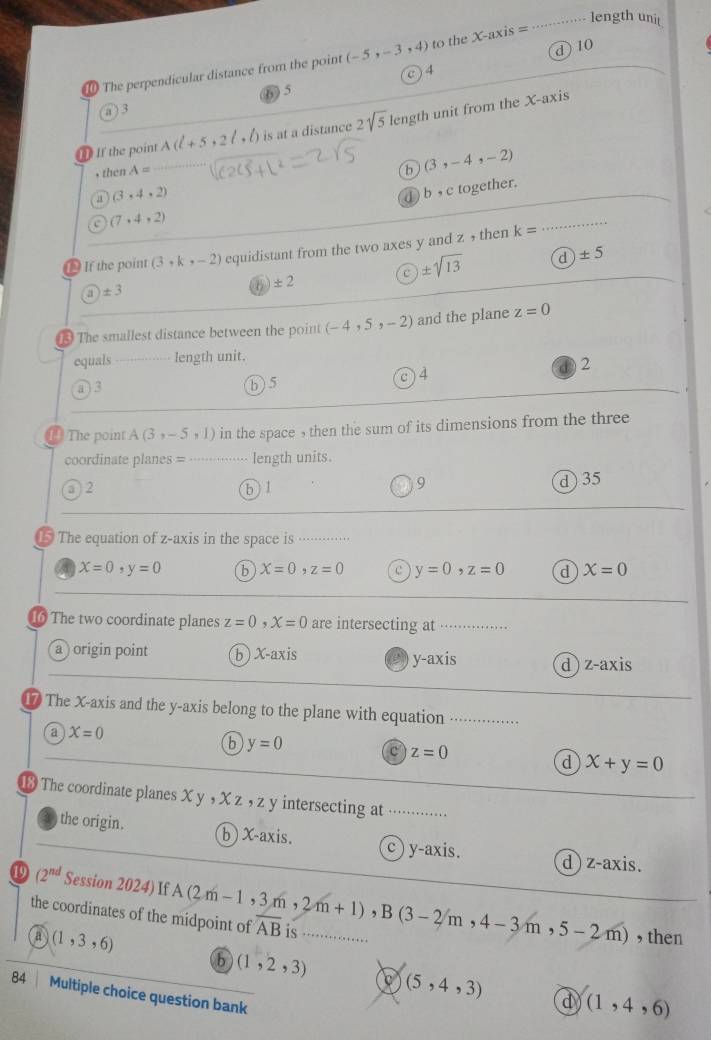 10 The perpendicular distance from the point (– 5 , – 3 , 4) to the X-axis = ............. length unit
a 3 b 5 c 4 d 10
11 If the point A (ℓ + 5 , 2 ℓ , ℓ) is at a distance 2√5 length unit from the X-axis
, then A = .............
a (3 , 4 , 2) b (3 , – 4 , – 2)
c (7 , 4 , 2) d b , c together.
12 If the point (3 , k , – 2) equidistant from the two axes y and z , then k = .............
a ± 3 b ± 2 c ± √13 d ± 5
13 The smallest distance between the point (– 4 , 5 , – 2) and the plane z = 0
equals ............. length unit.
a 3 b 5 c 4 d 2
14 The point A (3 , – 5 , 1) in the space , then the sum of its dimensions from the three
coordinate planes = ............. length units.
a 2 b 1 c 9 d 35
15 The equation of z-axis in the space is .............
a X = 0 , y = 0 b X = 0 , z = 0 c y = 0 , z = 0 d X = 0
16 The two coordinate planes z = 0 , X = 0 are intersecting at .............
a origin point b X-axis c y-axis d z-axis
17 The X-axis and the y-axis belong to the plane with equation .............
a X = 0 b y = 0 c z = 0 d X + y = 0
18 The coordinate planes X y , X z , z y intersecting at .............
a the origin. b X-axis. c y-axis. d z-axis.
19 (2nd Session 2024) If A (2 m – 1 , 3 m , 2 m + 1) , B (3 – 2 m , 4 – 3 m , 5 – 2 m) , then
the coordinates of the midpoint of AB is .............
a (1 , 3 , 6) b (1 , 2 , 3) c (5 , 4 , 3) d (1 , 4 , 6)
84 Multiple choice question bank